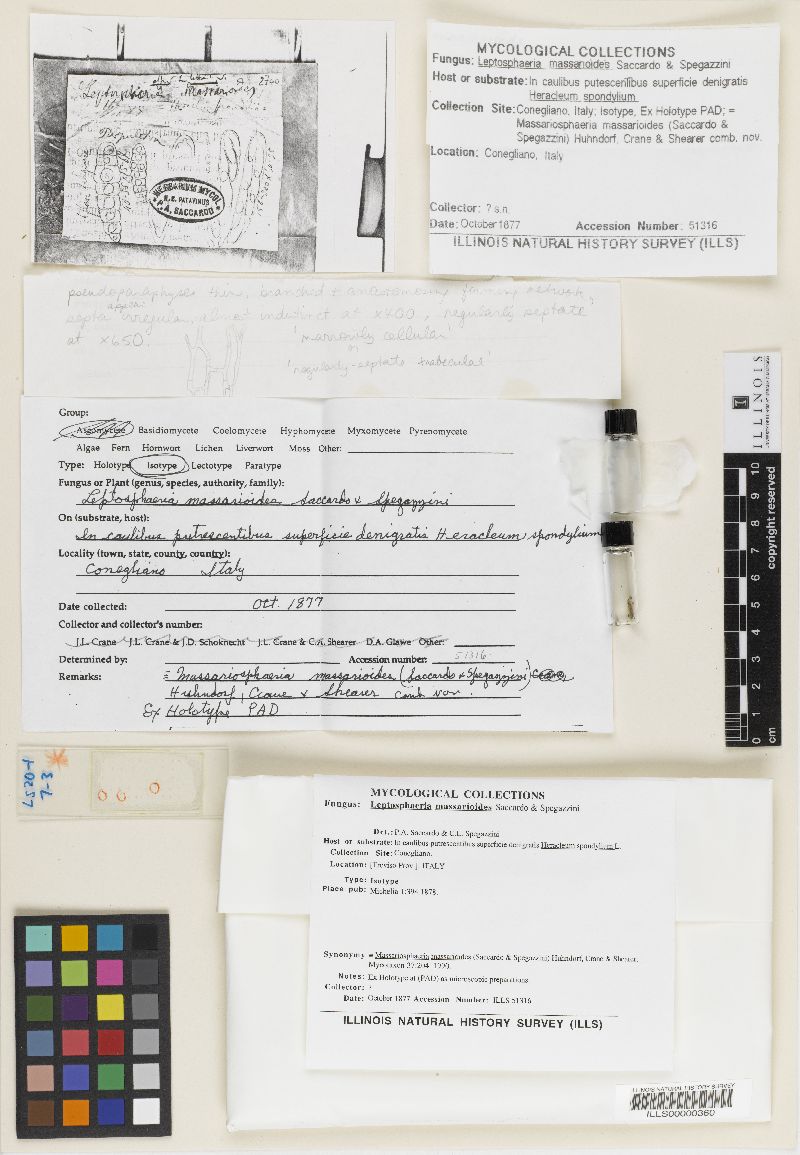 Leptosphaeria
massarioides
HERBARIUM MYCOL.
R. H. PATAVINUS
P. A. SACCARDO
MYCOLOGICAL COLLECTIONS
Fungus: Leptosphaeria massarioides Saccardo & Spegazzini
Host or substrate: In caulibus putescentibus superficie denigratis
Heracleum spondylium
Collection Site: Conegliano, Italy; Isotype, Ex Holotype PAD; =
Massariosphaeria massarioides (Saccardo &
Spegazzini) Huhndorf, Crane & Shearer comb. nov.
Location: Conegliano, Italy
Collector: ? s.n.
Date: October 1877 Accession Number: 51316
ILLINOIS NATURAL HISTORY SURVEY (ILLS)
pseudoparaphyses thin, branched + anastomosing forming network,
appear
septa irregular, almost indistinct at x400, regularly septate
at x650. 'narrowly cellular'
or
'regularly-septate trabecular'
Group:
Ascomycete Basidiomycete Coelomycete Hyphomycete Myxomycete Pyrenomycete
Algae Fern Hornwort Lichen Liverwort Moss Other:
Type: Holotype Isotype Lectotype Paratype
Fungus or Plant (genus, species, authority, family):
Leptosphaeria massarioides Saccardo & Spegazzini
On (substrate, host):
In caulibus putrescentibus superficie denigratis Heracleum spondylium
Locality (town, state, county, country):
Conegliano Italy
Date collected: Oct. 1877
Collector and collector's number:
J.L. Crane J.L. Crane & J.D. Schoknecht J.L. Crane & C.A. Shearer D.A. Glawe Other:
Determined by: Accession number: 51316
Remarks: = Massariosphaeria massarioides (Saccardo & Spegazzini) Crane
Huhndorf, Crane & Shearer comb. nov.
Ex Holotype PAD
ILLINOIS
copyright reserved
0 1 2 3 4 5 6 7 8 9 10
cm
LS20-1
7-3
MYCOLOGICAL COLLECTIONS
Fungus: Leptosphaeria massarioides Saccardo & Spegazzini
Det.: P.A. Saccardo & C.L. Spegazzini
Host or substrate: In caulibus putrescentibus superficie denigratis Heracleum spondylium L.
Collection Site: Conegliano.
Location: [Treviso Prov.] ITALY
Type: Isotype
Place pub: Michelia 1:394 1878.
Synonymy = Massariosphaeria massarioides (Saccardo & Spegazzini) Huhndorf, Crane & Shearer,
Mycotaxon 37:204 1990.
Notes: Ex Holotype at (PAD) as microscopic preparations
Collector: ?
Date: October 1877 Accession Number: ILLS 51316
ILLINOIS NATURAL HISTORY SURVEY (ILLS)
ILLINOIS NATURAL HISTORY SURVEY
ILLS00000360